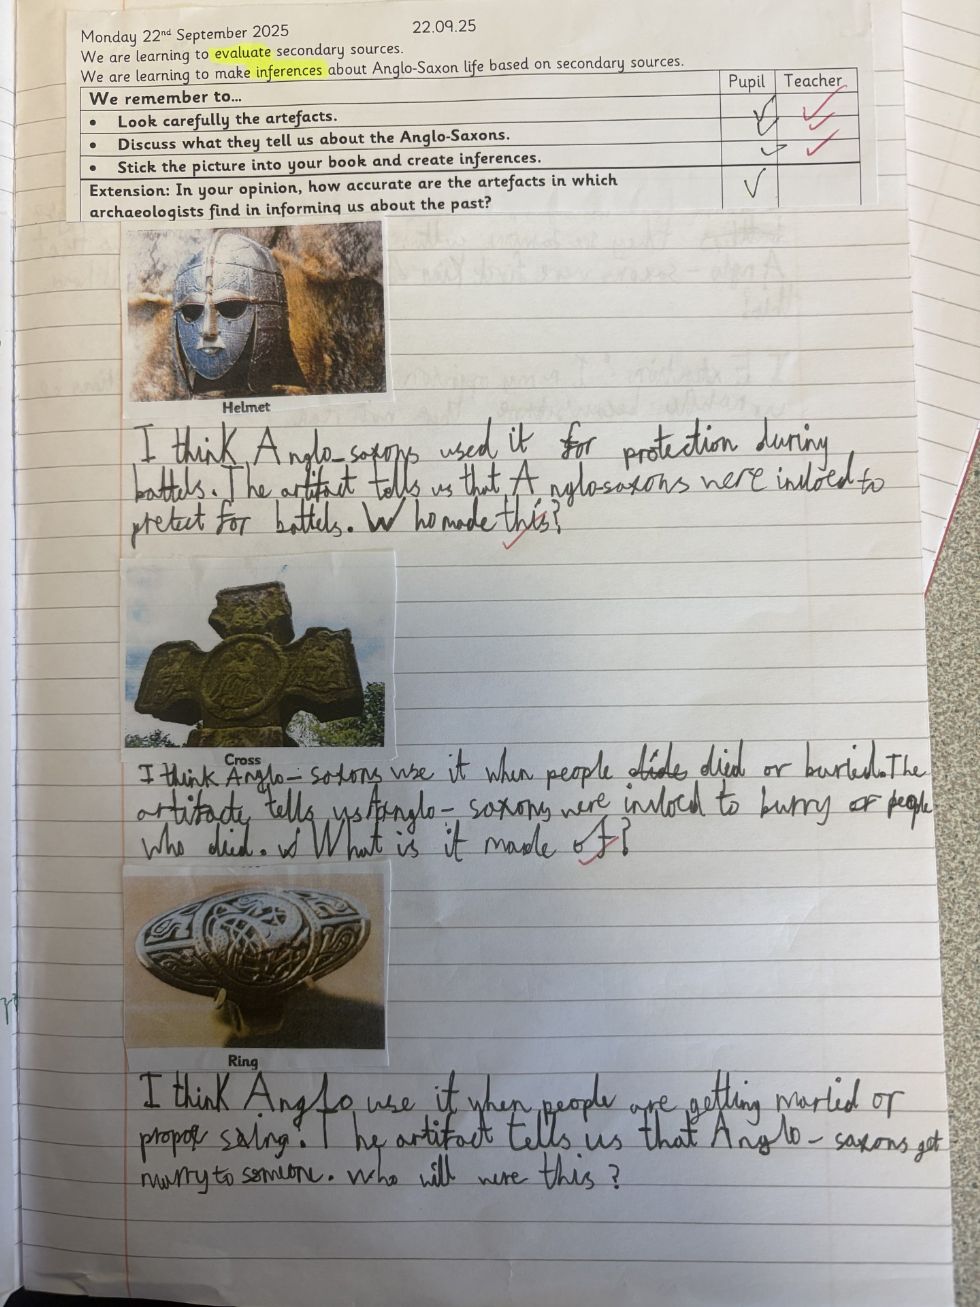 Monday 22nd September 2025 22.09.25
We are learning to evaluate secondary sources.
We are learning to make inferences about Anglo-Saxon life based on secondary sources.
Pupil Teacher
We remember to...
• Look carefully the artefacts.
• Discuss what they tell us about the Anglo-Saxons.
• Stick the picture into your book and create inferences.
Extension: In your opinion, how accurate are the artefacts in which
archaeologists find in informing us about the past?
Helmet
I think Anglo-saxons used it for protection during
battels. The artifact tells us that Anglo-saxons were invloed to
pretect for battels. Who made this?
Cross
I think Anglo-saxons use it when people died or buried. The
artifacte tells us Anglo-saxons were invloed to burry or people
who died. What is it made of?
Ring
I think Anglo use it when people are getting maried or
propose saing. The artifact tells us that Anglo-saxons get
murry to someone. Who will were this?